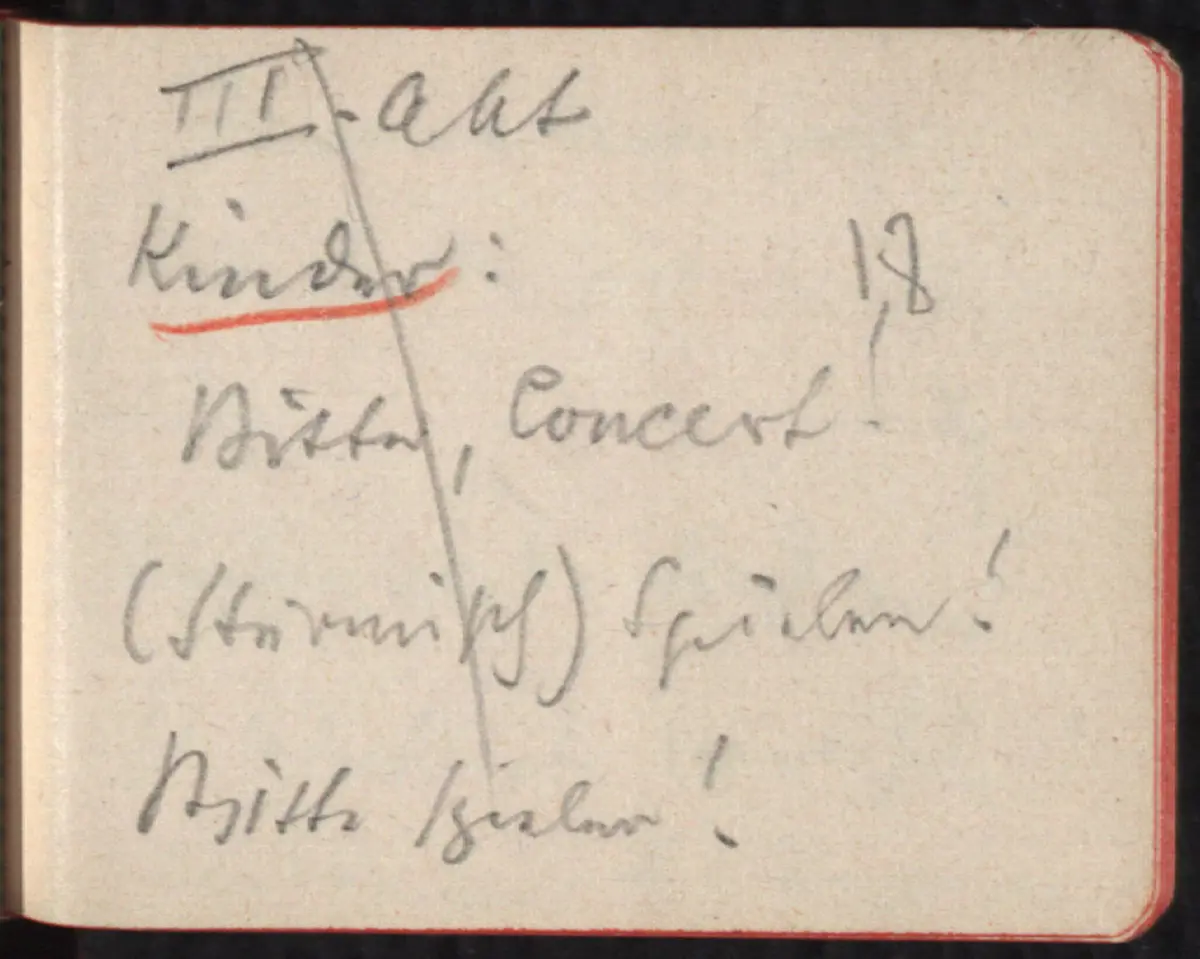 III. Akt
Kinder:
18
Bitte, Concert!
(Stürmisch) Spielen!
Bitte spielen!